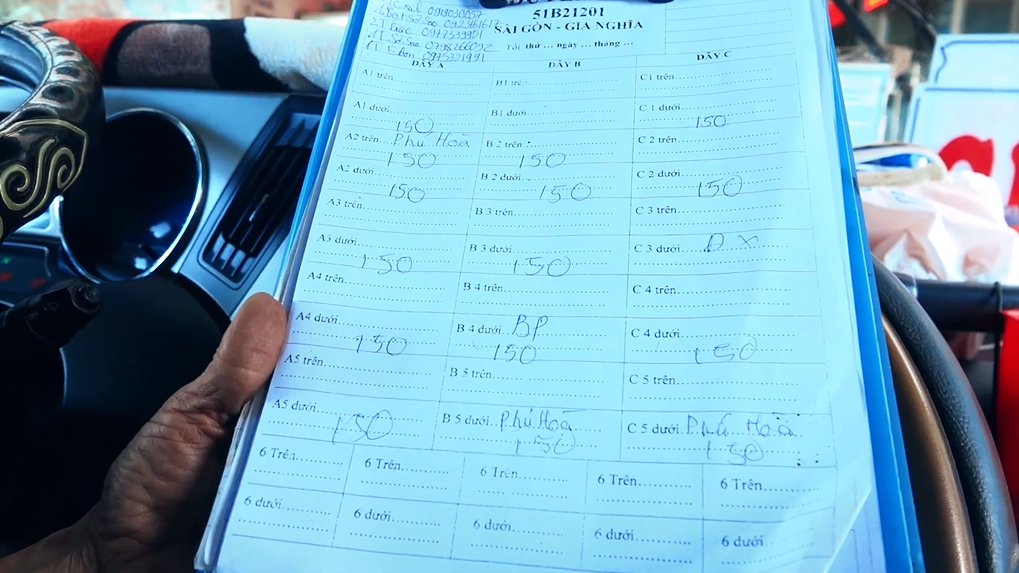 51B21201
SÀI GÒN - GIA NGHĨA
Tối thứ ... ngày ... tháng ...
0975321991
DÃY A DÃY B DÃY C
A1 trên B1 trên C1 trên
A1 dưới B1 dưới C 1 dưới
150 150
A2 trên Phú Hoà B 2 trên C 2 trên
150 150
A2 dưới B 2 dưới C 2 dưới
150 150 150
A3 trên B 3 trên C 3 trên
A3 dưới B 3 dưới C 3 dưới
150 150
A4 trên B 4 trên C 4 trên
A4 dưới B 4 dưới BP C 4 dưới
150 150 150
A5 trên B 5 trên C 5 trên
A5 dưới B 5 dưới Phú Hoà C 5 dưới Phú Hoà
150 150 150
6 Trên 6 Trên 6 Trên 6 Trên 6 Trên
6 dưới 6 dưới 6 dưới 6 dưới 6 dưới